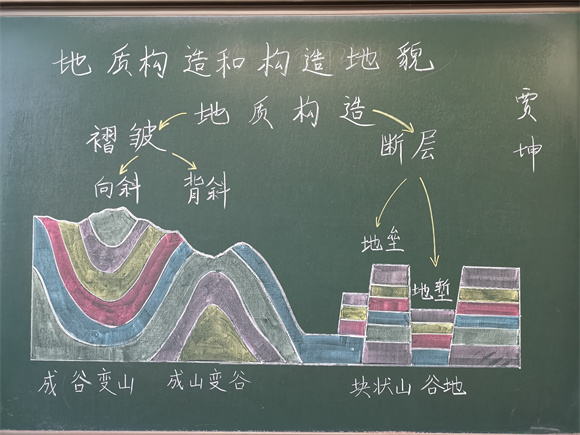 地质构造和构造地貌
地质构造
贾坤
褶皱
断层
向斜
背斜
地垒
地堑
成谷变山
成山变谷
块状山
谷地